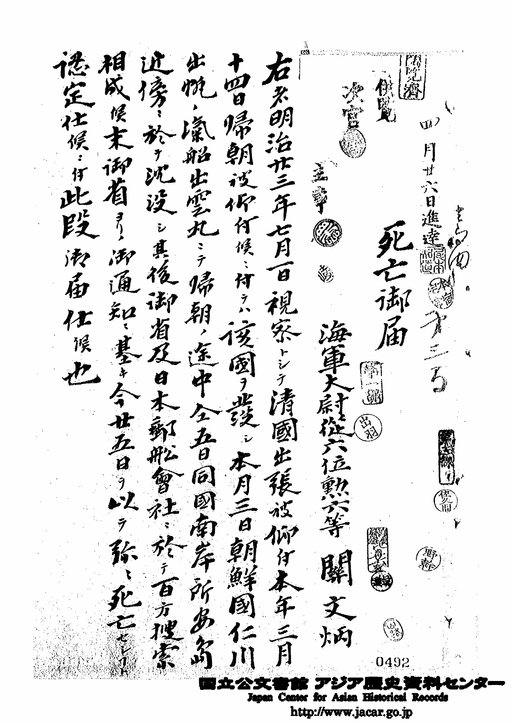 供覧
次官
主事
四月廿六日進達
死亡御届
海軍大尉從六位勲六等 關文炳
右者明治廿三年七月一日視察トシテ清國出張被仰付本年三月
十四日帰朝被仰付候ニ付テハ該國ヲ發シ本月三日朝鮮國仁川
出帆ノ滊船出雲丸ニテ帰朝ノ途中仝五日同國南岸所安島
近傍ニ於テ沈没シ其後御省及日本郵舩會社ニ於テ百方搜索
相成候末御省ヨリノ御通知ニ基キ今廿五日ヲ以テ弥々死亡セシ
認定仕候ニ付此段御届仕候也
0492
国立公文書館 アジア歴史資料センター
Japan Center for Asian Historical Records
http://www.jacar.go.jp